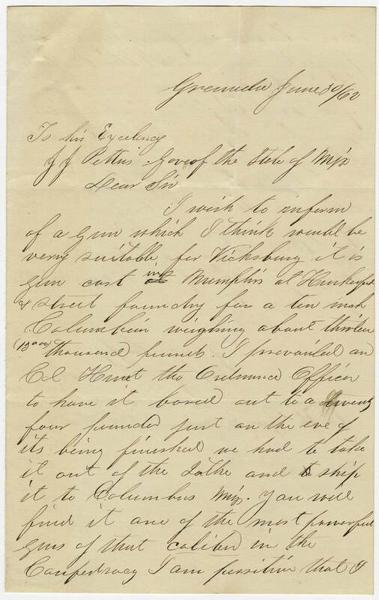 Grenada June 30/62
To his Excelency
J J Pettus Gove of the State of Miss
Dear Sir
I wish to inform
of a Gun which I think would be
verry suitable for Vicksburg it is
gun cast in Memphis at
& Street foundry for a ten inch
Columbiad weighing about thirteen
13000 thousand punds. I prevailed on
Col Hunt the Ordinance Officer
to have it bored out to a twenty
four pounder just on the eve of
its being finished we had to take
it out of the Lathe and ship
it to Columbus Miss. You will
find it one of the most powerful
guns of that caliber in the
Confedracy I am possitive that I